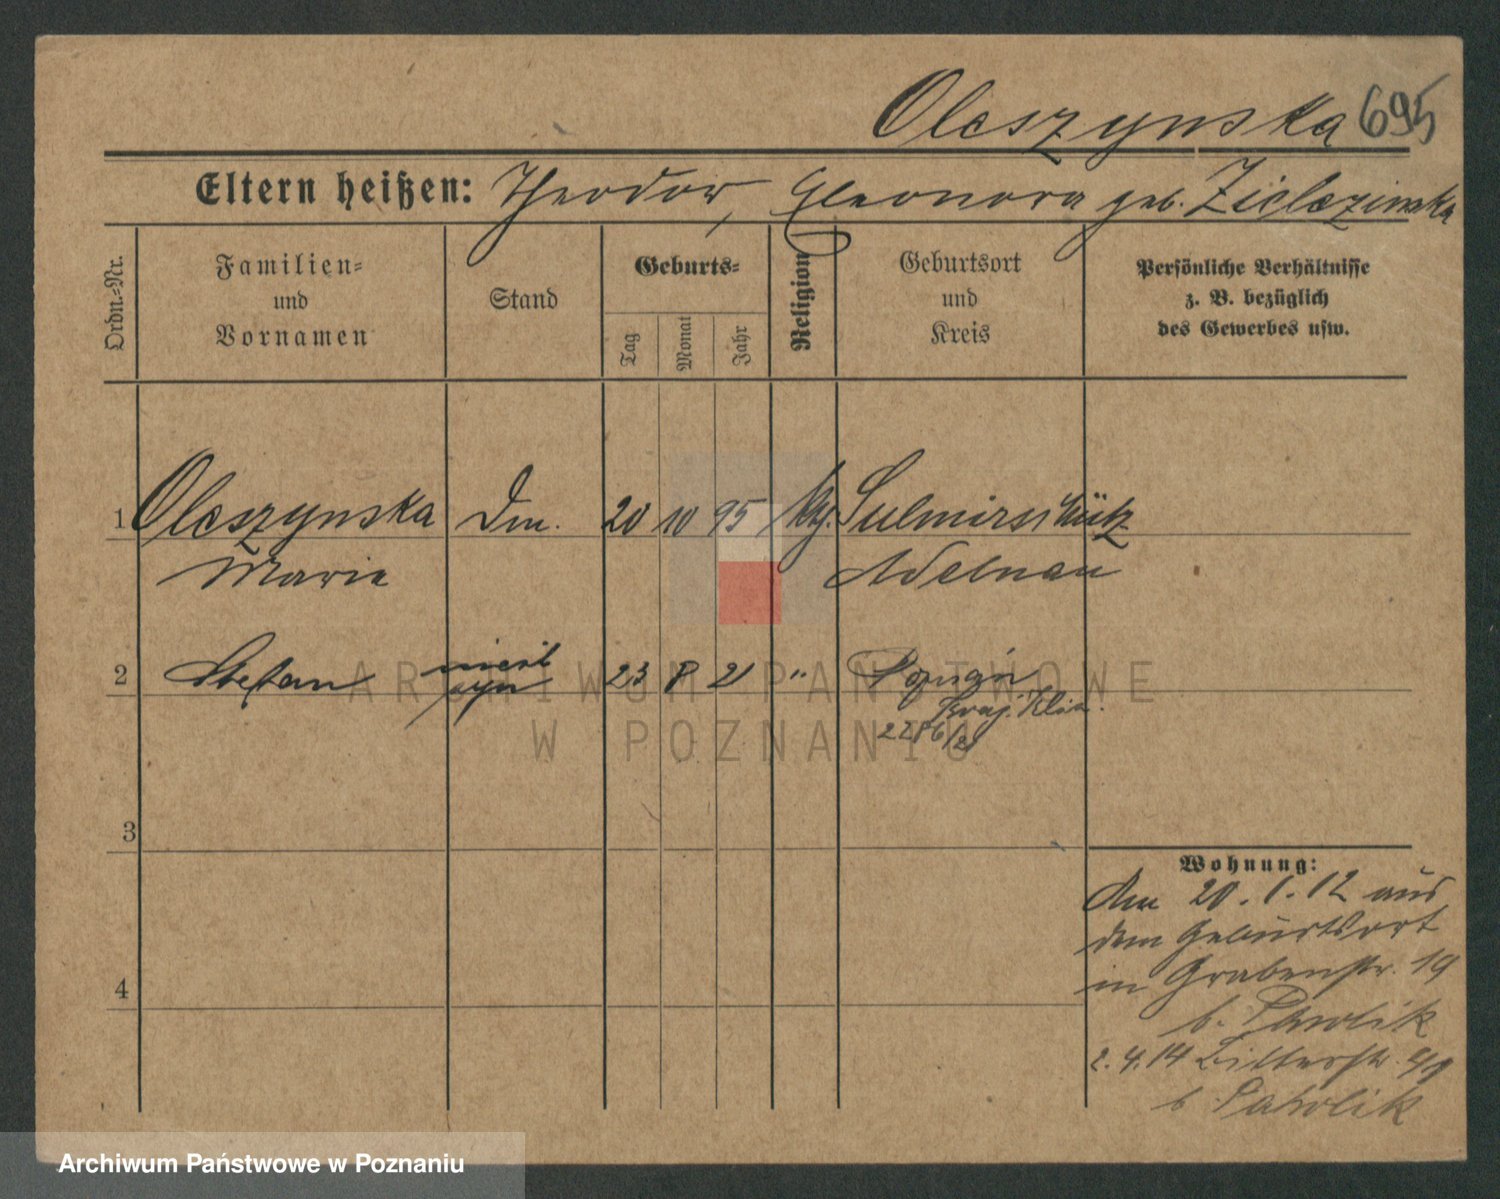 Oleszynska 695
Eltern heißen: Theodor, Eleonora geb. Zielezinska
Ordn.-Nr.
Familien-
und
Vornamen
Stand
Geburts-
Tag
Monat
Jahr
Religion
Geburtsort
und
Kreis
Persönliche Verhältnisse
z. B. bezüglich
des Gewerbes usw.
1 Oleszynska Dm. 20 10 95 Sulmirschütz
Marie Adelnau
2 Stefan nieśl. 23 8 21 " Poznań
syn
2286/21
3
4
Wohnung:
Am 20.1.12 aus
dem Geburtsort
in Grabenstr. 19
b. Pawlik
2.4.14 Bitterstr.
b. Patrolik
ARCHIWUM PAŃSTWOWE
W POZNANIU
Archiwum Państwowe w Poznaniu